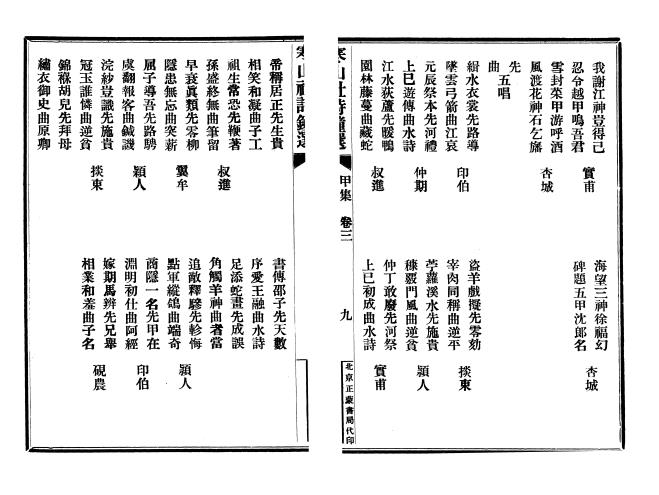 我謝江神豈得已
忍令越甲鳴吾君
寅甫
雪封萊甲游呼酒
風渡花神石乞旛
杏城
先
曲 五唱
緝水衣裳先路導
墜雲弓箭曲江哀
印伯
元辰祭本先河禮
上巳遊傳曲水詩
仲期
江水荻蘆先暖鴨
園林藤蔓曲藏蛇
叔進
海望三神徐福幻
碑題五甲沈郎名
杏城
盜羊戲擬先零劾
宰肉同稱曲逆平
掞東
苧蘿溪水先施貴
穅覈門風曲逆貧
穎人
仲丁敢廢先河祭
上巳初成曲水詩
寅甫
寒山社詩鐘選
甲集 卷三
九
北京正蒙書局代印
希稱居正先生貴
相笑和凝曲子工
祖生常恐先鞭著
孫盛終無曲筆留
叔進
早衰眞類先零柳
隱患無忘曲突薪
翼牟
屈子導吾先路騁
虞翻報客曲鍼譏
穎人
浣紗豈識先施貴
冠玉誰憐曲逆貧
掞東
錦褓胡兒先拜母
繡衣御史曲原卿
書傳邵子先天數
序愛王融曲水詩
足添蛇畫先成誤
角觸羊神曲者當
追敵釋驂先軫悔
點軍縱鴿曲端奇
穎人
商隱一名先甲在
淵明初仕曲阿經
印伯
嫁期馬辨先兄舉
相業和羹曲子名
硯農